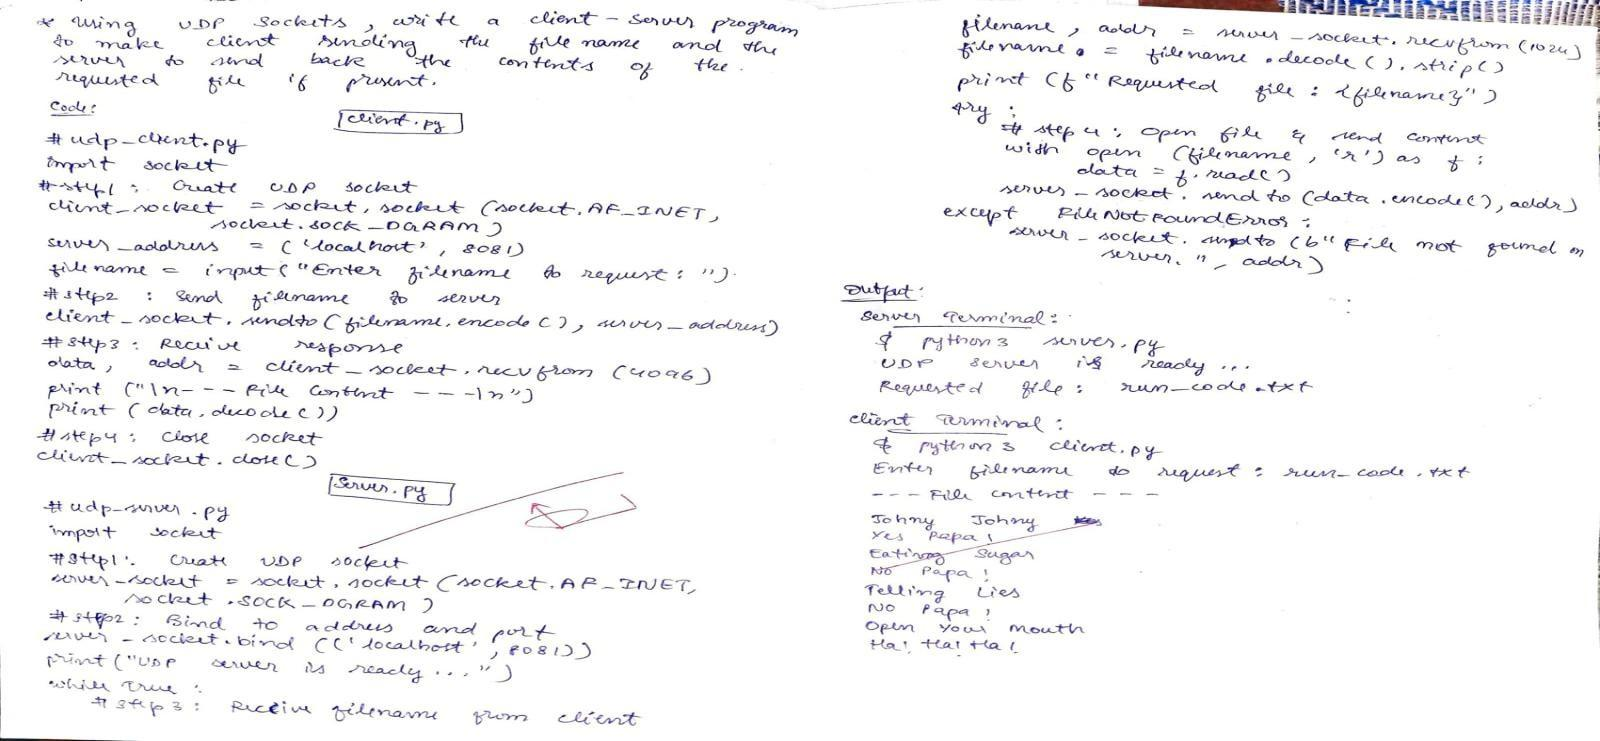 * Using UDP Sockets, write a client-server program
to make client sending the file name and the
server to send back the contents of the
requested file if present.
Code:
client.py
# udp_client.py
import socket
# step1: Create UDP socket
client_socket = socket.socket (socket.AF_INET,
socket.SOCK_DGRAM)
server_address = ('localhost', 8081)
filename = input("Enter filename to request: ").
# step2 : Send filename to server
client_socket.sendto(filename.encode(), server_address)
# step3: Receive response
data, addr = client_socket.recvfrom (4096)
print ("\n--- File Content ---\n")
print (data.decode())
# step4: Close socket
client_socket.close()
Server.py
# udp_server.py
import socket
# step1: Create UDP socket
server_socket = socket.socket (socket.AF_INET,
socket.SOCK_DGRAM)
# step2: Bind to address and port
server_socket.bind (('localhost', 8081))
print("UDP server is ready...")
while True :
# step 3: Receive filename from client
filename, addr = server_socket.recvfrom (1024)
filename = filename.decode().strip()
print (f"Requested file : {filename}")
try :
# step 4: Open file & send content
with open (filename, 'r') as f :
data = f.read()
server_socket.sendto (data.encode(), addr)
except FileNotFoundError :
server_socket.sendto (b"File not found on
server.", addr)
Output:
Server Terminal:
$ python3 server.py
UDP server is ready...
Requested file : run_code.txt
Client Terminal :
$ python3 client.py
Enter filename to request : run_code.txt
--- File content ---
Johny Johny
Yes Papa!
Eating Sugar
No Papa!
Telling Lies
No Papa!
Open Your Mouth
Ha! Ha! Ha!